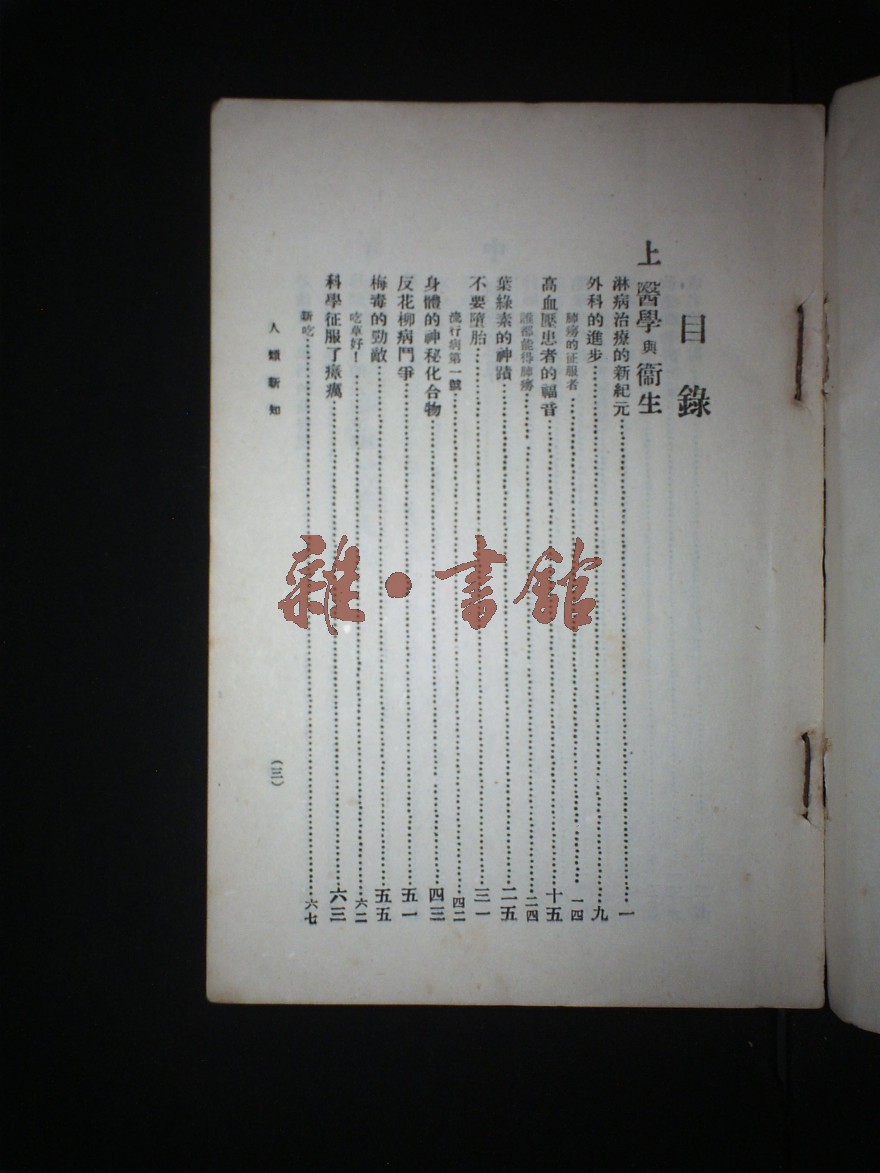 目錄
上 醫學與衞生
淋病治療的新紀元……一
外科的進步……九
肺癆的征服者……一四
高血壓患者的福音……十五
誰都能得肺癆……二四
葉綠素的神蹟……二五
不要墮胎……三一
流行病第一號……四二
身體的神秘化合物……四三
反花柳病鬥爭……五一
梅毒的勁敵……五五
吃草好！……六二
科學征服了瘴癘……六三
新吃……六七
人類新知
（三）
雜・書館